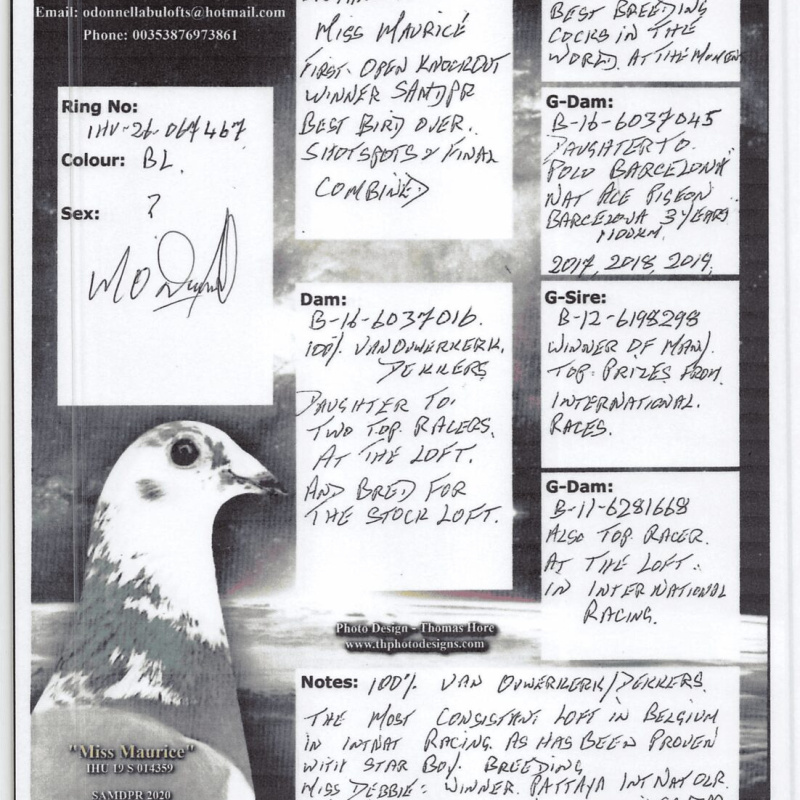 Email: odonnellabulofts@hotmail.com
Phone: 00353876973861
Ring No:
IHU-26-067467
Colour: BL.
Sex: ?
MISS MAURICE
FIRST. OPEN KNOCKOUT
WINNER SAMDPR
BEST BIRD OVER.
SHOTSPOTS & FINAL
COMBINED
Dam:
B-16-6037016.
100% VAN OUWERKERK.
DEKKERS
DAUGHTER TO.
TWO TOP RACERS.
AT THE LOFT.
AND BRED FOR
THE STOCK LOFT.
BEST BREEDING
COCKS IN THE
WORLD. AT THE MOMENT
G-Dam:
B-16-6037045
DAUGHTER TO.
POLO BARCELONA
NAT ACE PIGEON
BARCELONA 3 YEARS
1100KM.
2017, 2018, 2019,
G-Sire:
B-12-6198298
WINNER OF MANY.
TOP. PRIZES FROM.
INTERNATIONAL.
RACES.
G-Dam:
B-11-6281668
ALSO TOP RACER.
AT THE LOFT.
IN INTERNATIONAL
RACING.
Photo Design - Thomas Hore
www.thphotodesigns.com
Notes: 100% VAN OUWERKERK/DEKKERS.
THE MOST CONSISTANT LOFT IN BELGIUM
IN INTNAT RACING. AS HAS BEEN PROVEN
WITH STAR BOY. BREEDING
MISS DEBBIE: WINNER. PATTAYA INTNAT OLR.
"Miss Maurice"
IHU 19 S 014359
SAMDPR 2020